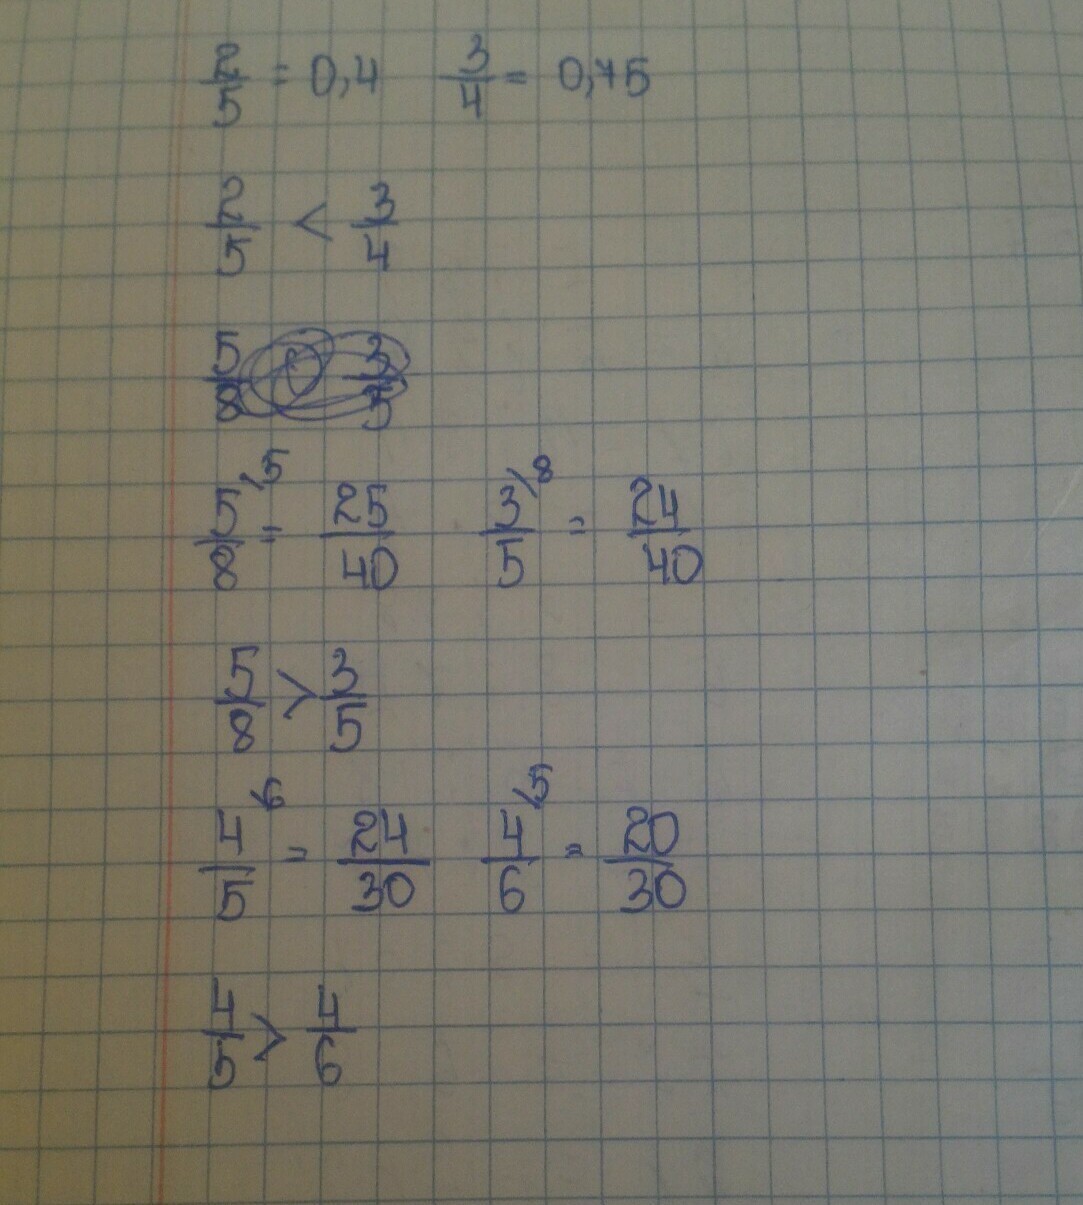 2/5 = 0,4 3/4 = 0,75
2/5 < 3/4
5/8 3/5
5/8 \5 = 25/40 3/5 \8 = 24/40
5/8 > 3/5
4/5 \6 = 24/30 4/6 \5 = 20/30
4/5 > 4/6